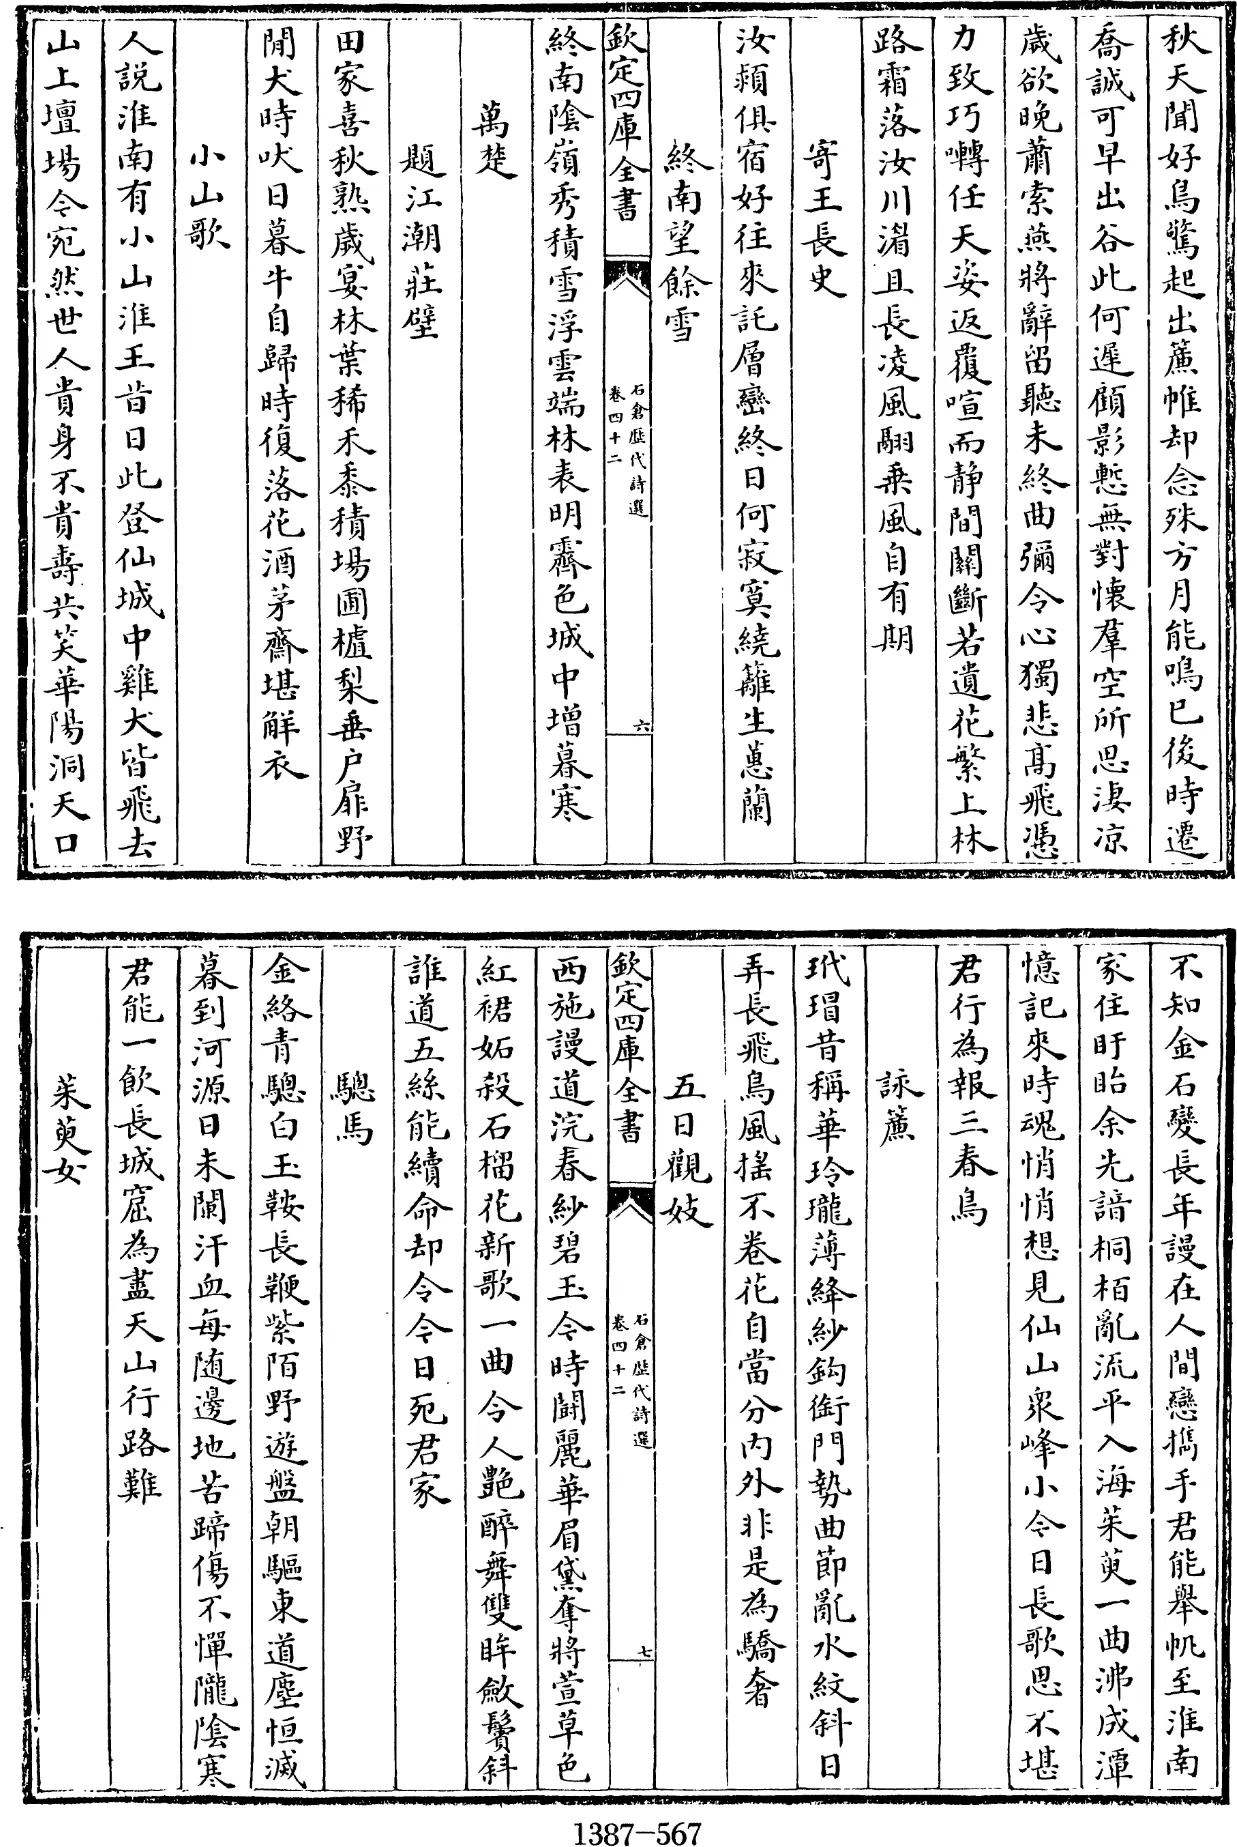 秋天聞好鳥驚起出簾帷却念殊方月能鳴已後時遷
喬誠可早出谷此何遲顧影慙無對懷羣空所思淒凉
歲欲晚蕭索燕將辭留聽未終曲彌令心獨悲髙飛憑
力致巧囀任天姿返覆喧而静間關斷若遺花繁上林
路霜落汝川湄且長凌風翮乗風自有期
寄王長史
汝潁俱宿好往來託層巒終日何寂寞繞籬生蕙蘭
終南望餘雪
欽定四庫全書
石倉歴代詩選
卷四十二
六
終南陰嶺秀積雪浮雲端林表明霽色城中增暮寒
萬楚
題江潮莊壁
田家喜秋熟歲宴林葉稀禾黍積場圃樝梨垂户扉野
閒犬時吠日暮牛自歸時復落花酒茅齋堪解衣
小山歌
人説淮南有小山淮王昔日此登仙城中雞犬皆飛去
山上壇場今宛然世人貴身不貴壽共笑華陽洞天口
不知金石變長年謾在人間戀擕手君能舉帆至淮南
家住盱眙余先諳桐栢亂流平入海茱萸一曲沸成潭
憶記來時魂悄悄想見仙山衆峰小今日長歌思不堪
君行為報三春鳥
詠簾
玳瑁昔稱華玲瓏薄絳紗鈎銜門勢曲節亂水紋斜日
弄長飛鳥風揺不卷花自當分内外非是為驕奢
五日觀妓
欽定四庫全書
石倉歴代詩選
卷四十二
七
西施謾道浣春紗碧玉今時鬬麗華眉黛奪將萱草色
紅裙妬殺石榴花新歌一曲令人艶醉舞雙眸斂鬢斜
誰道五絲能續命却令今日死君家
驄馬
金絡青驄白玉鞍長鞭紫陌野遊盤朝驅東道塵恒滅
暮到河源日未闌汗血每随邊地苦蹄傷不憚隴陰寒
君能一飲長城窟為盡天山行路難
茱萸女
1387-567